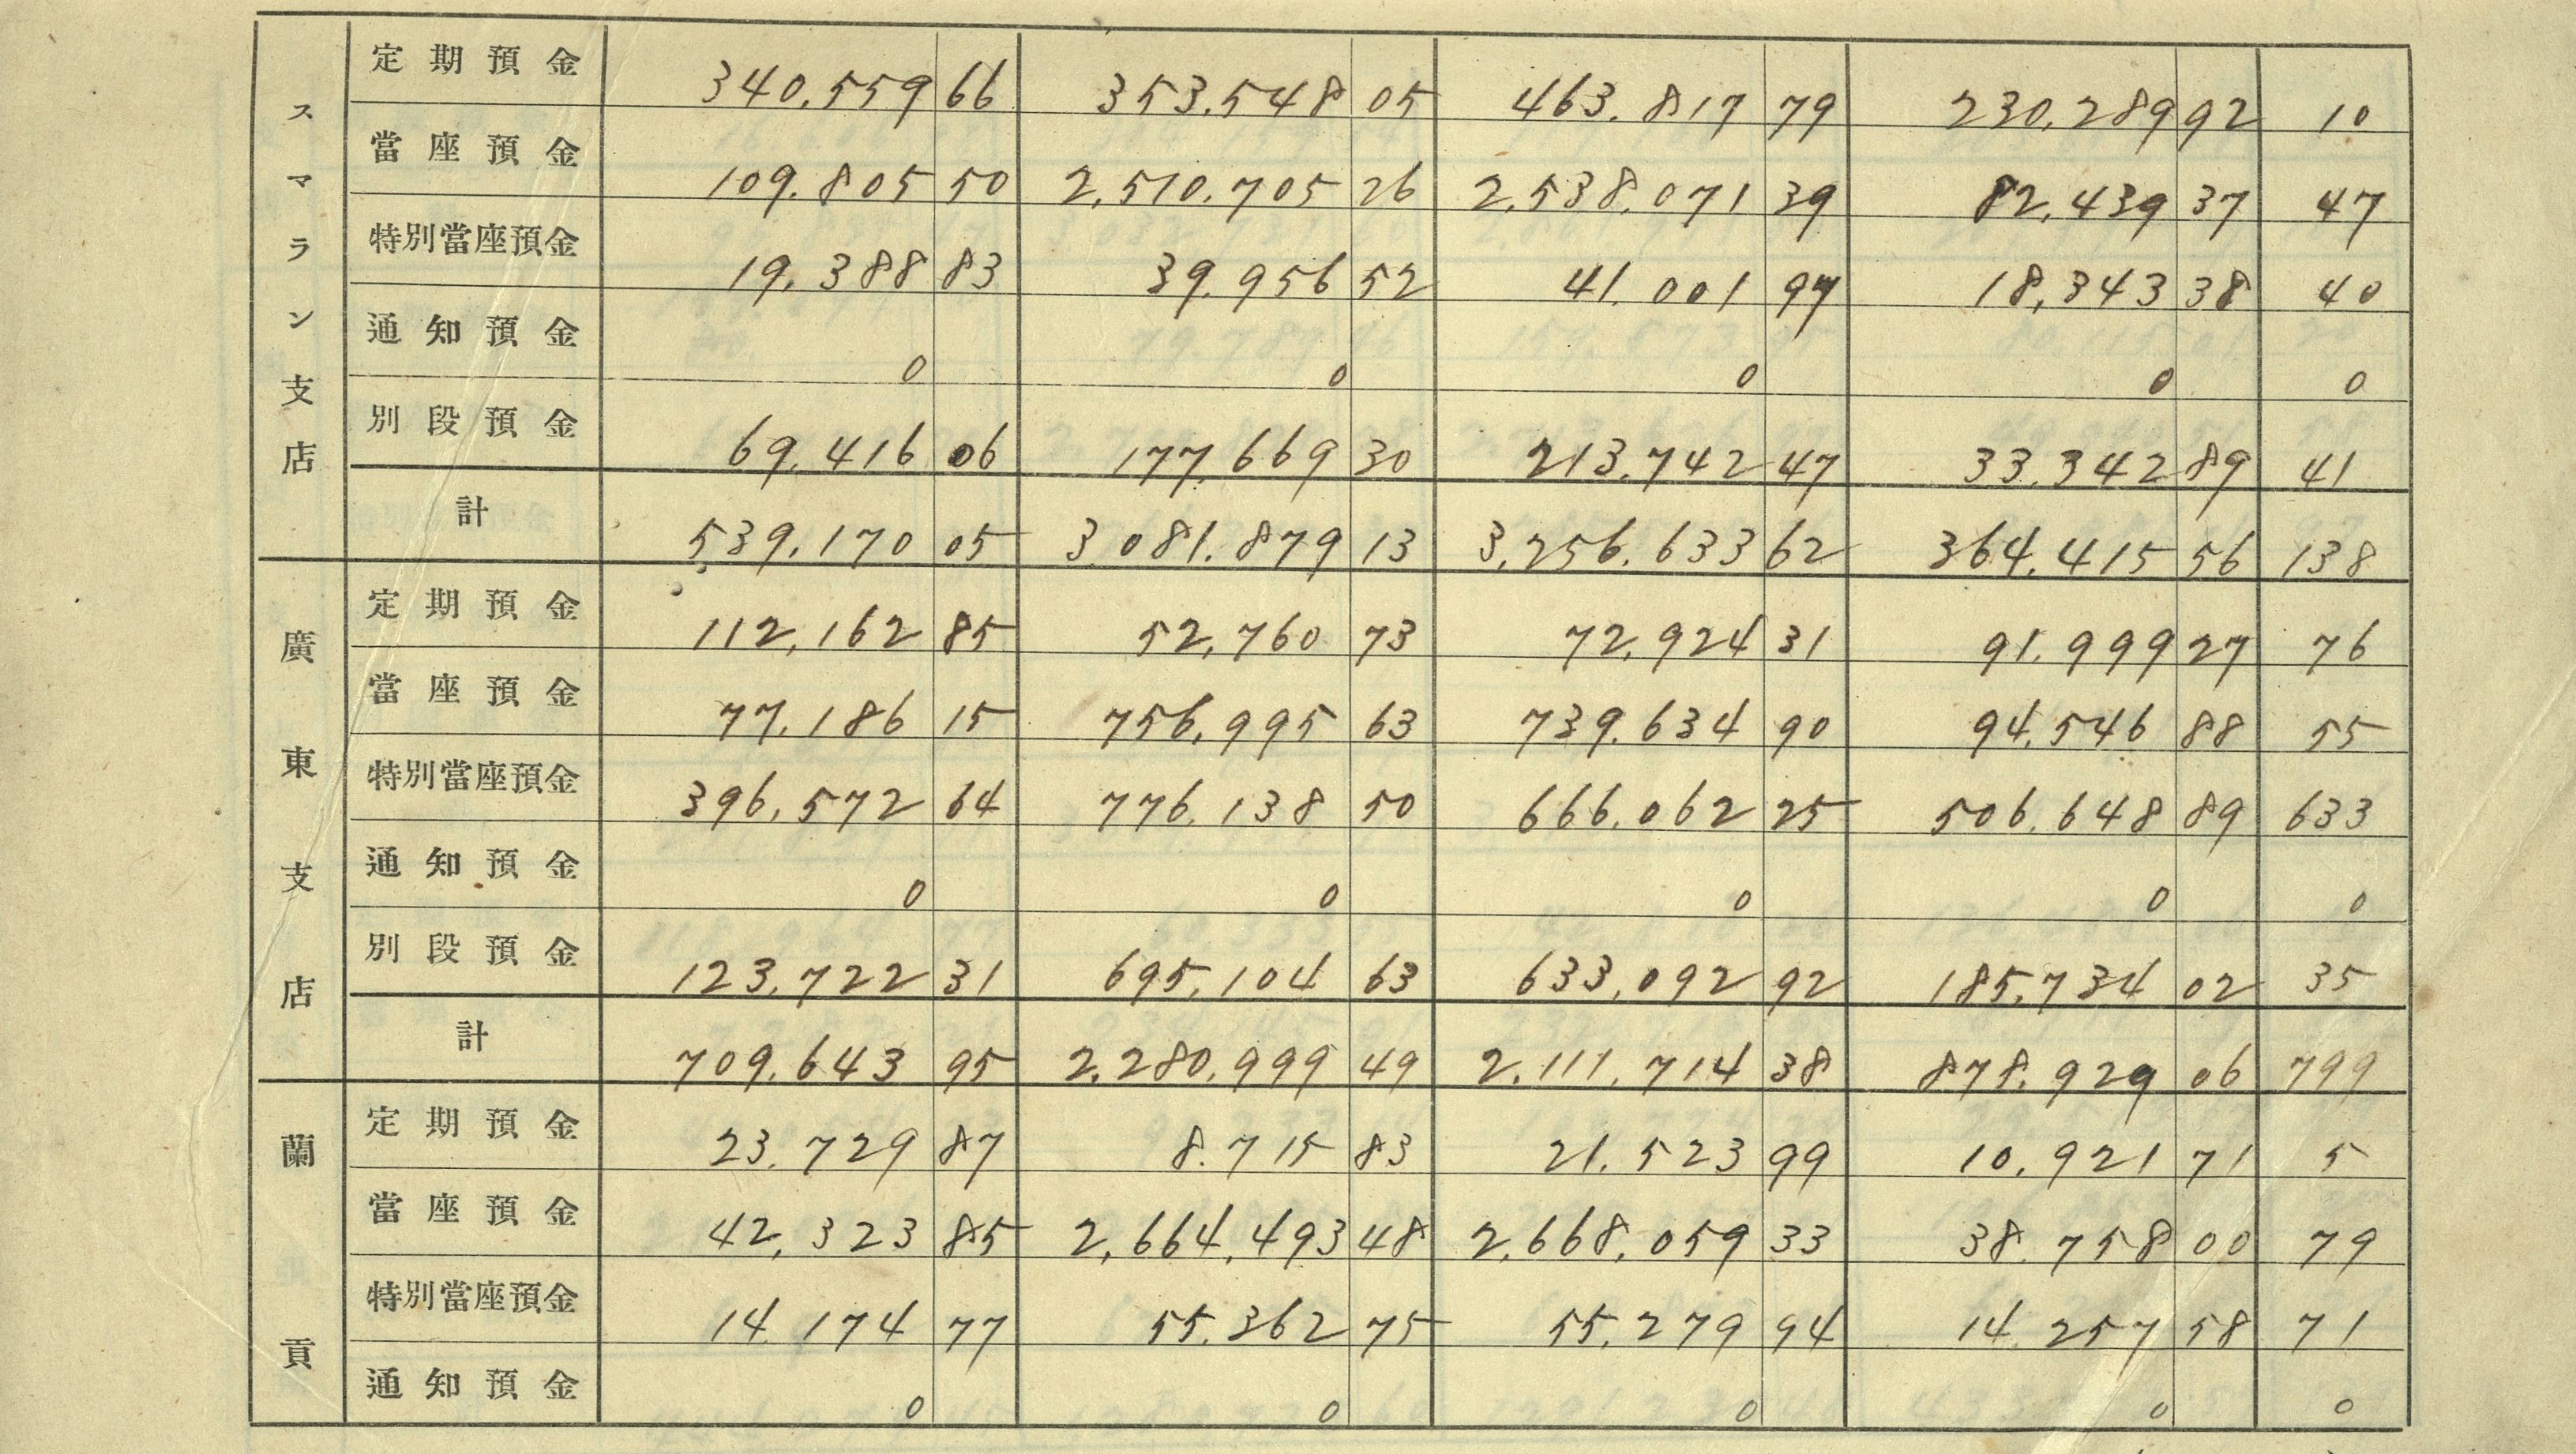 スマラン支店
定期預金 340,559 66 353,548 05 463,817 79 230,289 92 10
當座預金 109,805 50 2,510,705 26 2,538,071 39 82,439 37 47
特別當座預金 19,388 83 39,956 52 41,001 97 18,343 38 40
通知預金 0 0 0 0 0
別段預金 69,416 06 177,669 30 213,742 47 33,342 89 41
計 539,170 05 3,081,879 13 3,256,633 62 364,415 56 138
廣東支店
定期預金 112,162 85 52,760 73 72,924 31 91,999 27 76
當座預金 77,186 15 756,995 63 739,634 90 94,546 88 55
特別當座預金 396,572 64 776,138 50 666,062 25 506,648 89 633
通知預金 0 0 0 0 0
別段預金 123,722 31 695,104 63 633,092 92 185,734 02 35
計 709,643 95 2,280,999 49 2,111,714 38 878,929 06 799
蘭貢
定期預金 23,729 87 8,715 83 21,523 99 10,921 71 5
當座預金 42,323 85 2,664,493 48 2,668,059 33 38,758 00 79
特別當座預金 14,174 77 55,362 75 55,279 94 14,257 58 71
通知預金 0 0 0 0 0